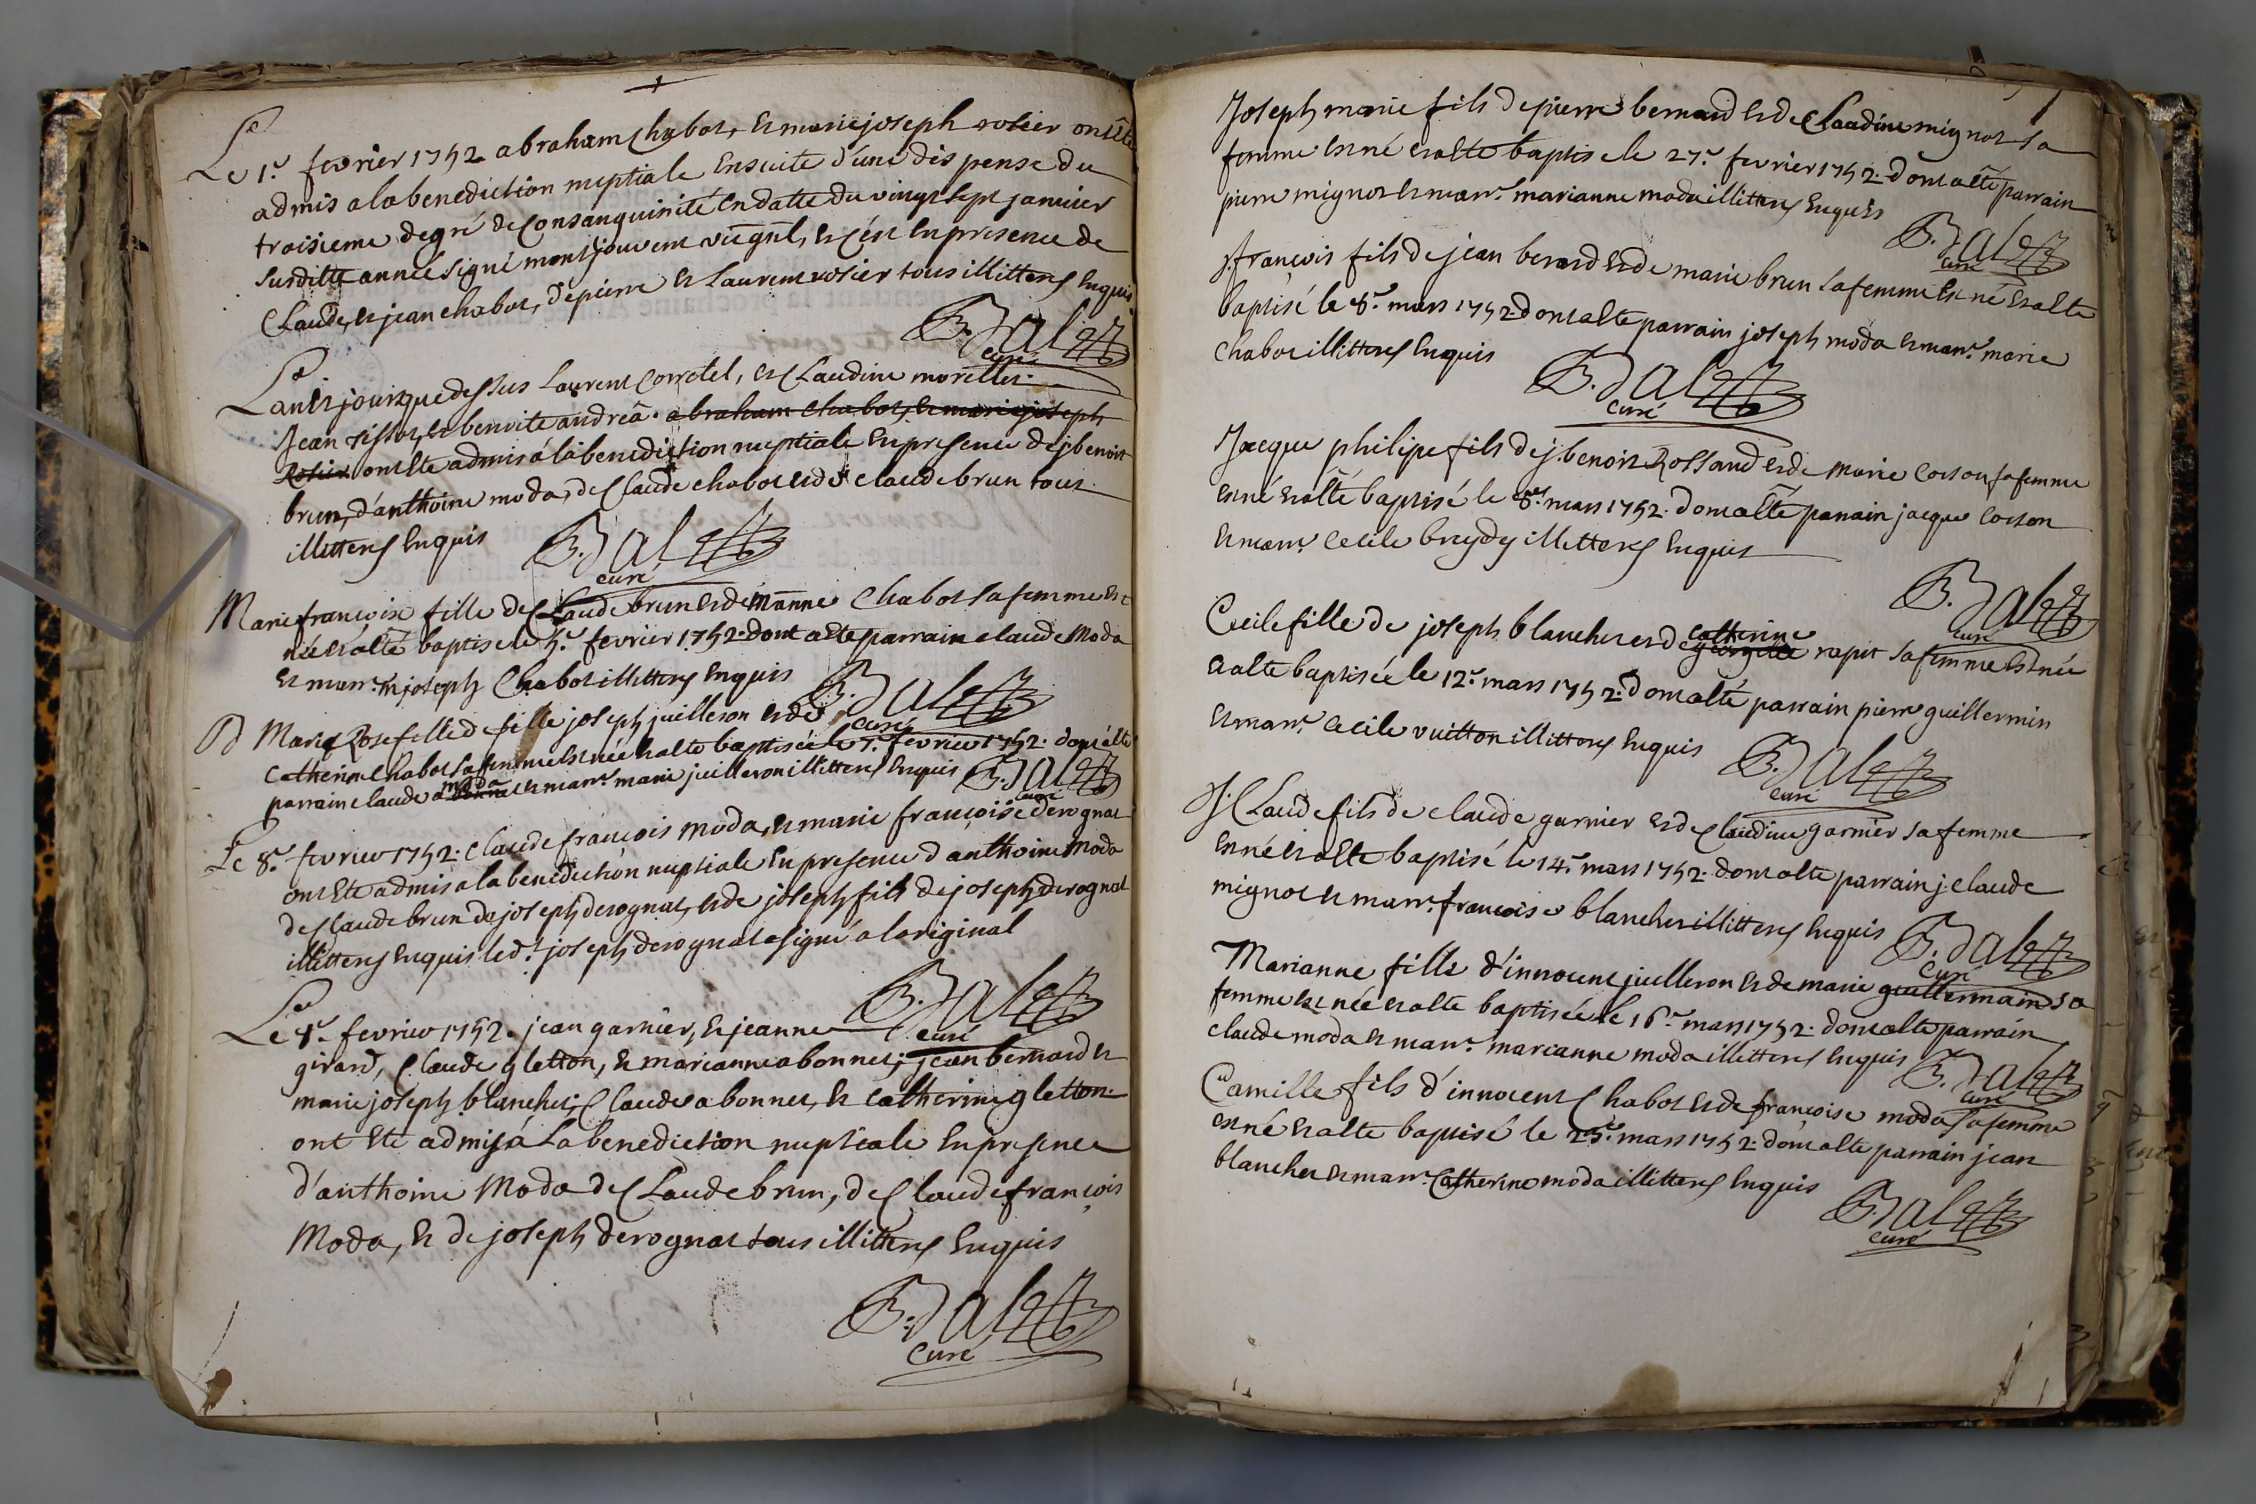 Le 1.r fevrier 1752 abraham Chabot, et marie joseph rosier ont été
admis a la benediction nuptiale ensuite d'une dispense du
troisieme degré de Consanguinité en datte du vingt sept janvier
surditte année signé montjouvent vic gnl, et c'est en presence de
Claude, et jean chabot, de pierre et Laurent rosier tous illitterés enquis
B. Dalez
curé
L'an et jour que dessus Laurent Corretel, et Claudine morellet.
Jean tissot, et benoite andrea. abraham Chabot, et marie joseph
Rosier ont ete admis á la benediction nuptiale en presence de j benoit
brun, d'anthoine moda, de Claude chabot et de claude brun tous
illitterés enquis
B. Dalez
curé
Marie françoise fille de Claude brun et de Mānne Chabot sa femme est
née et a eté baptisé le 5.e fevrier 1752. dont a ete parrain claude Moda
et marr.ne m joseph Chabot illitterés enquis
B. Dalez
curé
D Marie Rose fille de joseph juilleron et de
catherine Chabot sa femme est née et a ete baptisée le 7.e fevrier 1752. dont a éte
parrain claude moda et marr.e marie juilleron illitterés enquis
B. Dalez
curé
Le 8.e fevrier 1752. Claude françois Moda, et marie françoise derognat
ont ete admis a la benediction nuptiale en presence d'anthoine Moda
de Claude brun de joseph derognat, et de joseph fils de joseph derognat
illitterés enquis le d.t joseph derognat a signé a l'original
B. Dalez
curé
Le 8.e fevrier 1752. jean garnier, et jeanne
girard, Claude gletton, et marianne abonnet; jean bernard et
marie joseph blanchet; Claude abonnet, et catherine gletton.
ont ete admis á La benediction nuptiale en presence
d'anthoine Moda de Claude brun, de Claude françois
Moda, et de joseph derognat tous illitterés enquis
B. Dalez
curé
Joseph marie fils de pierre bernard et de Claudine mignot sa
femme est né et a ete baptisé le 27.e fevrier 1752. dont a eté parrain
pierre mignot et marr.e marianne moda illitterés enquis
B. Dalez
curé
j. françois fils de jean berard et de marie brun sa femme est né et a ete
baptisé le 8.e mars 1752. dont a ete parrain joseph moda et marr.e marie
chabot illitterés enquis
B. Dalez
curé
Jacque philipe fils de j. benoit Rossand et de marie corton sa femme
est né et a eté baptisé le 8.e mars 1752. dont a été parrain jacque corton
et marr.e cecile breydy illitterés enquis
B. Dalez
curé
Cecile fille de joseph blanchet et de catherine rapit sa femme est née
et a ete baptisée le 12.e mars 1752. dont a eté parrain pierre guillermin
et marr.e cecile vuitton illitterés enquis
B. Dalez
curé
J. Claude fils de claude garnier et de Claudine garnier sa femme
est né et a ete baptisé le 14.e mars 1752. dont a ete parrain j. claude
mignot et marr.e françoise blanchet illitterés enquis
B. Dalez
curé
Marianne fille d'innocent juilleron et de marie guillermain sa
femme est née et a ete baptisée le 16.e mars 1752. dont a ete parrain
claude moda et marr.e marianne moda illitterés enquis
B. Dalez
curé
Camille fils d'innocent Chabot et de françoise moda sa femme
est né et a ete baptisé le 25.e mars 1752. dont a ete parrain jean
blanchet et marr.e Catherine moda illitterés enquis
B. Dalez
curé